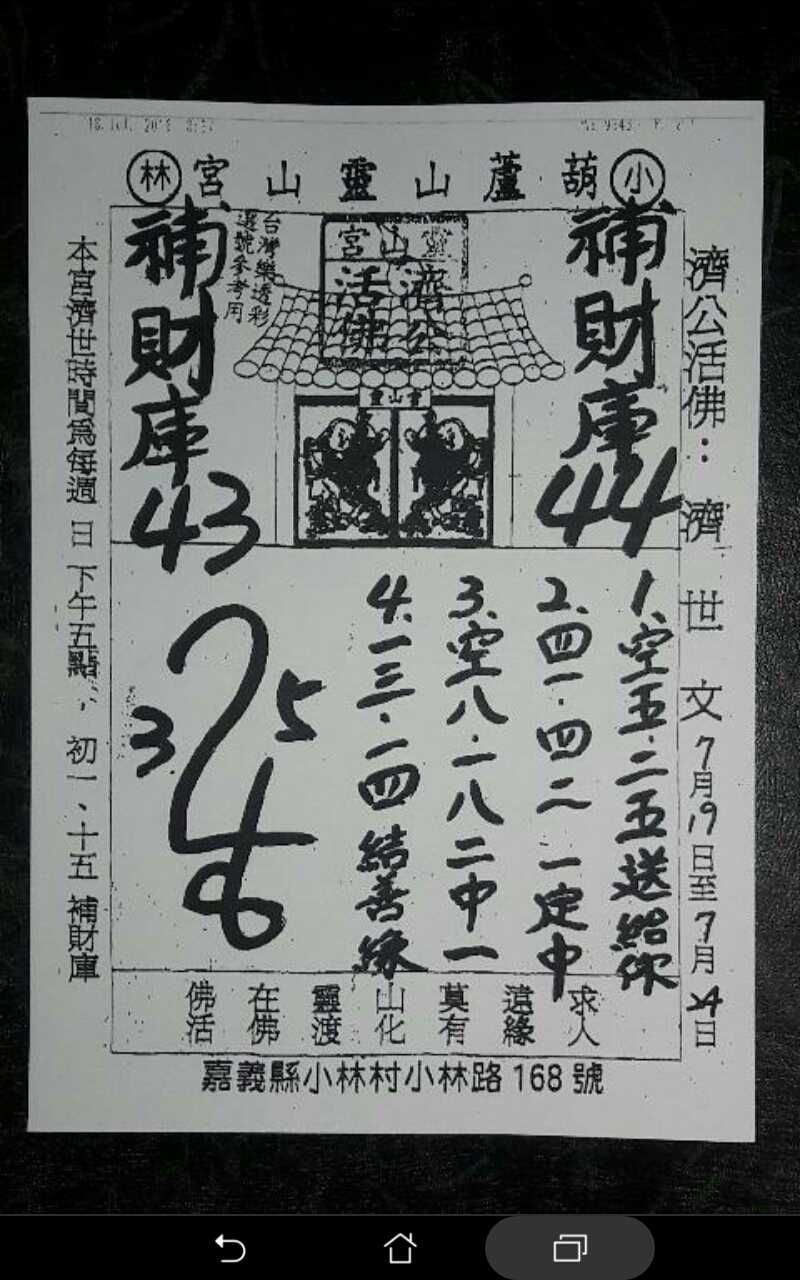 小 葫蘆山靈山宮 林
濟公活佛：濟世文 7月19日至7月24日
補財庫 44
靈山宮
濟公
活佛
靈山宮
台灣樂透彩
選號參考用
補財庫 43
1.空五.二五送給你
2.四一.四二一定中
3.空八.一八二中一
4.一三.一四結善緣
3
5
求人
遠緣
莫有
山化
靈渡
在佛
佛活
本宮濟世時間為每週日下午五點，初一、十五補財庫
嘉義縣小林村小林路168號